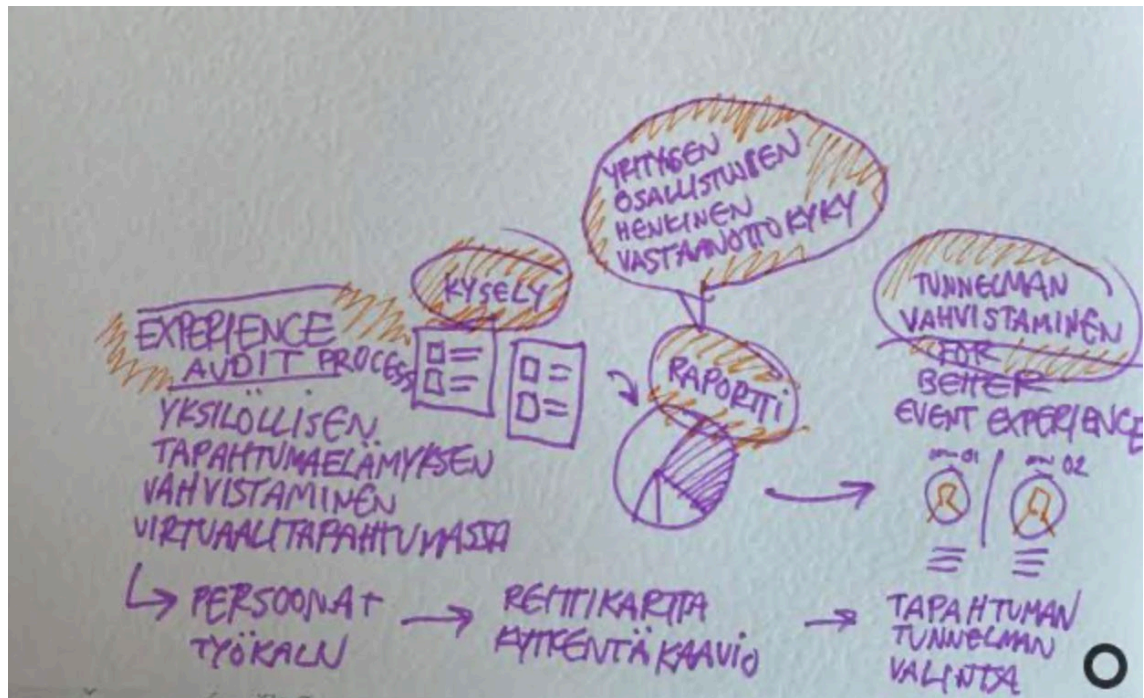 EXPERIENCE
AUDIT PROCESS
YKSILÖLLISEN
TAPAHTUMAELÄMYKSEN
VAHVISTAMINEN
VIRTUAALITAPAHTUMASSA
KYSELY
YRITYSEN
OSALLISTUJIEN
HENKINEN
VASTAANOTTOKYKY
RAPORTTI
TUNNELMAN
VAHVISTAMINEN
FOR
BETTER
EVENT EXPERIENCE
01
02
PERSOONAT
TYÖKALU
REITTIKARTTA
KYTKENTÄKAAVIO
TAPAHTUMAN
TUNNELMAN
VALINTA